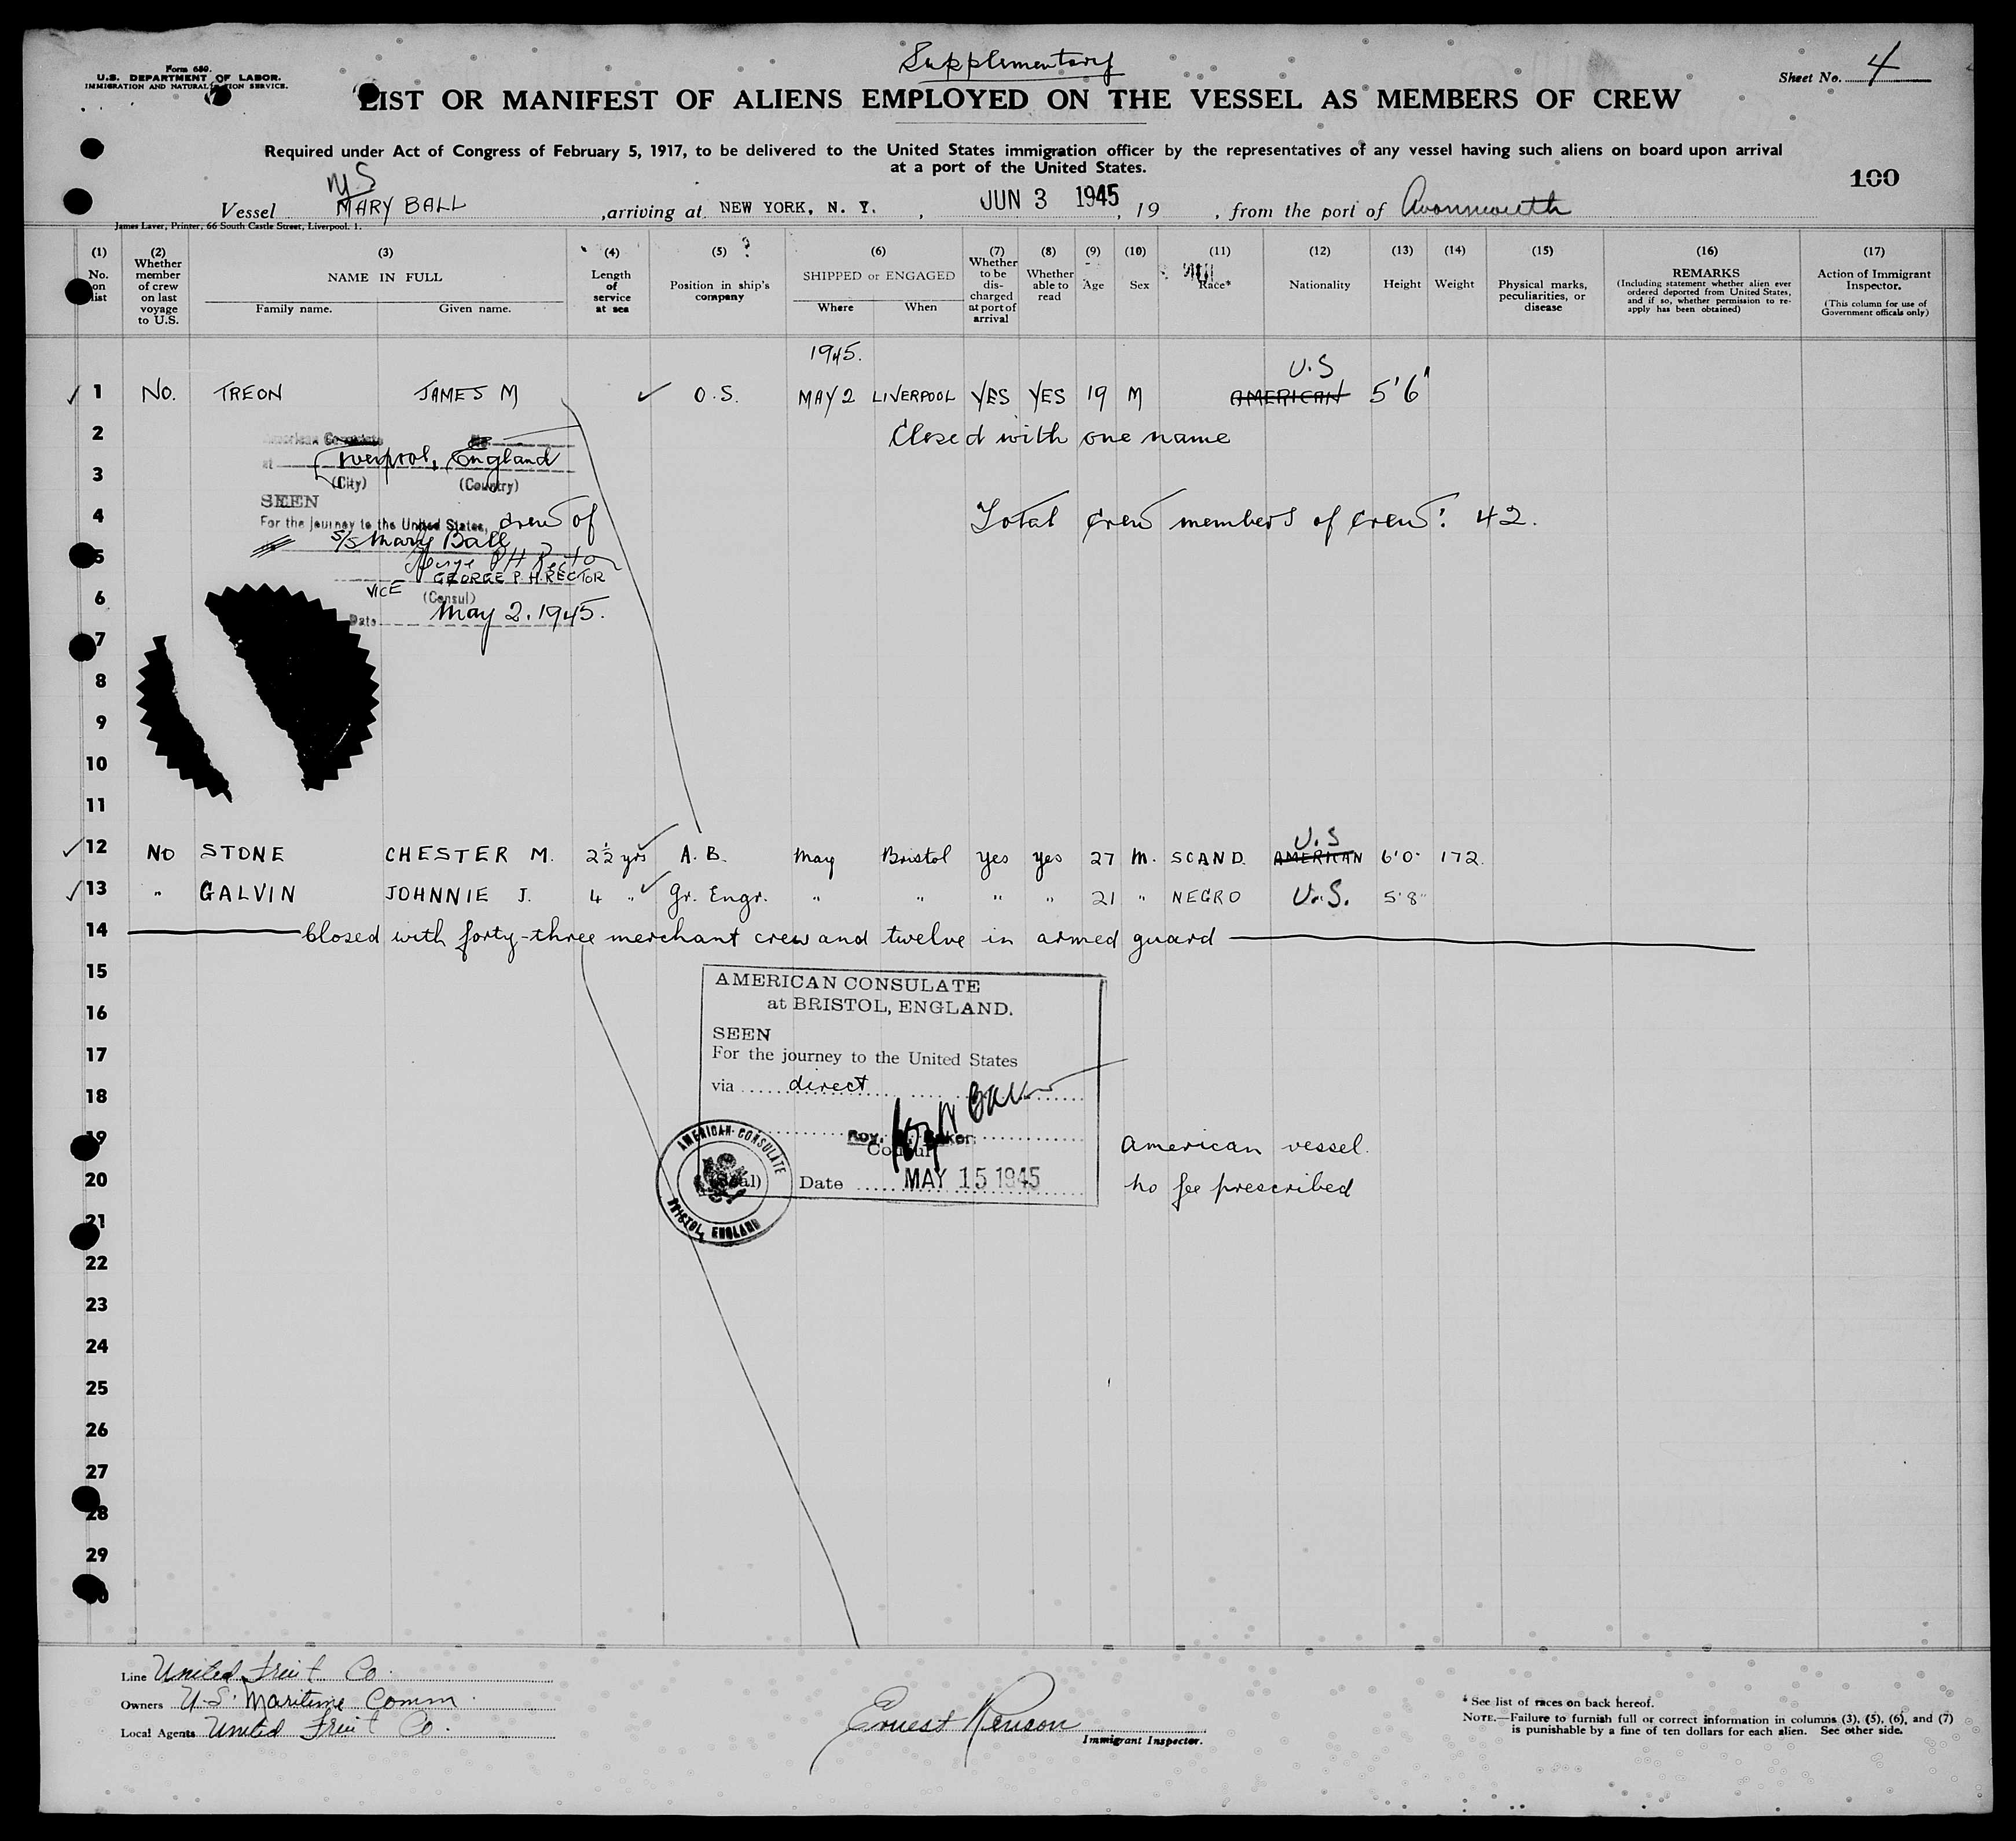 Supplementary
Form 680.
U.S. DEPARTMENT OF LABOR.
IMMIGRATION AND NATURALIZATION SERVICE.
Sheet No. 4
LIST OR MANIFEST OF ALIENS EMPLOYED ON THE VESSEL AS MEMBERS OF CREW
Required under Act of Congress of February 5, 1917, to be delivered to the United States immigration officer by the representatives of any vessel having such aliens on board upon arrival
at a port of the United States.
100
MS
Vessel MARY BALL , arriving at NEW YORK, N. Y. , JUN 3 1945 , 19 , from the port of Avonmouth
James Laver, Printer, 66 South Castle Street, Liverpool. 1.
(1) No. on list
(2) Whether member of crew on last voyage to U.S.
(3) NAME IN FULL
Family name. Given name.
(4) Length of service at sea
(5) ? Position in ship's company
(6) SHIPPED or ENGAGED
Where When
(7) Whether to be discharged at port of arrival
(8) Whether able to read
(9) Age
(10) Sex
(11) Race*
(12) Nationality
(13) Height
(14) Weight
(15) Physical marks, peculiarities, or disease
(16) REMARKS
(Including statement whether alien ever ordered deported from United States, and if so, whether permission to re-apply has been obtained)
(17) Action of Immigrant Inspector.
(This column for use of Government officals only)
1945.
U.S
1 No. TREON JAMES M O.S. MAY 2 LIVERPOOL YES YES 19 M AMERICAN 5'6"
2 Closed with one name
American Consulate No.
at Liverpool, England
3
(City) (Country)
SEEN
4 For the journey to the United States, crew of
Total crew members of crew: 42.
S/S Mary Ball
5
George P H Rector
GEORGE P. H. RECTOR
VICE (Consul)
6
Date May 2. 1945.
7
8
9
10
11
U.S
12 NO STONE CHESTER M. 2½ yrs A.B. May Bristol yes yes 27 M. SCAND. AMERICAN 6'0" 172.
13 " GALVIN JOHNNIE J. 4 " Gr. Engr. " " " " 21 " NEGRO U.S. 5'8"
14 Closed with forty-three merchant crew and twelve in armed guard
15
AMERICAN CONSULATE
at BRISTOL, ENGLAND.
16
SEEN
17
For the journey to the United States
via direct
18
19
Roy Baker
Consul
American vessel.
20
(Seal) Date MAY 15 1945
no fee prescribed
AMERICAN CONSULATE
BRISTOL, ENGLAND
21
22
23
24
25
26
27
28
29
Line United Fruit Co.
Owners U.S. Maritime Comm.
Local Agents United Fruit Co.
Ernest Renson
Immigrant Inspector.
* See list of races on back hereof.
NOTE.—Failure to furnish full or correct information in columns (3), (5), (6), and (7)
is punishable by a fine of ten dollars for each alien. See other side.